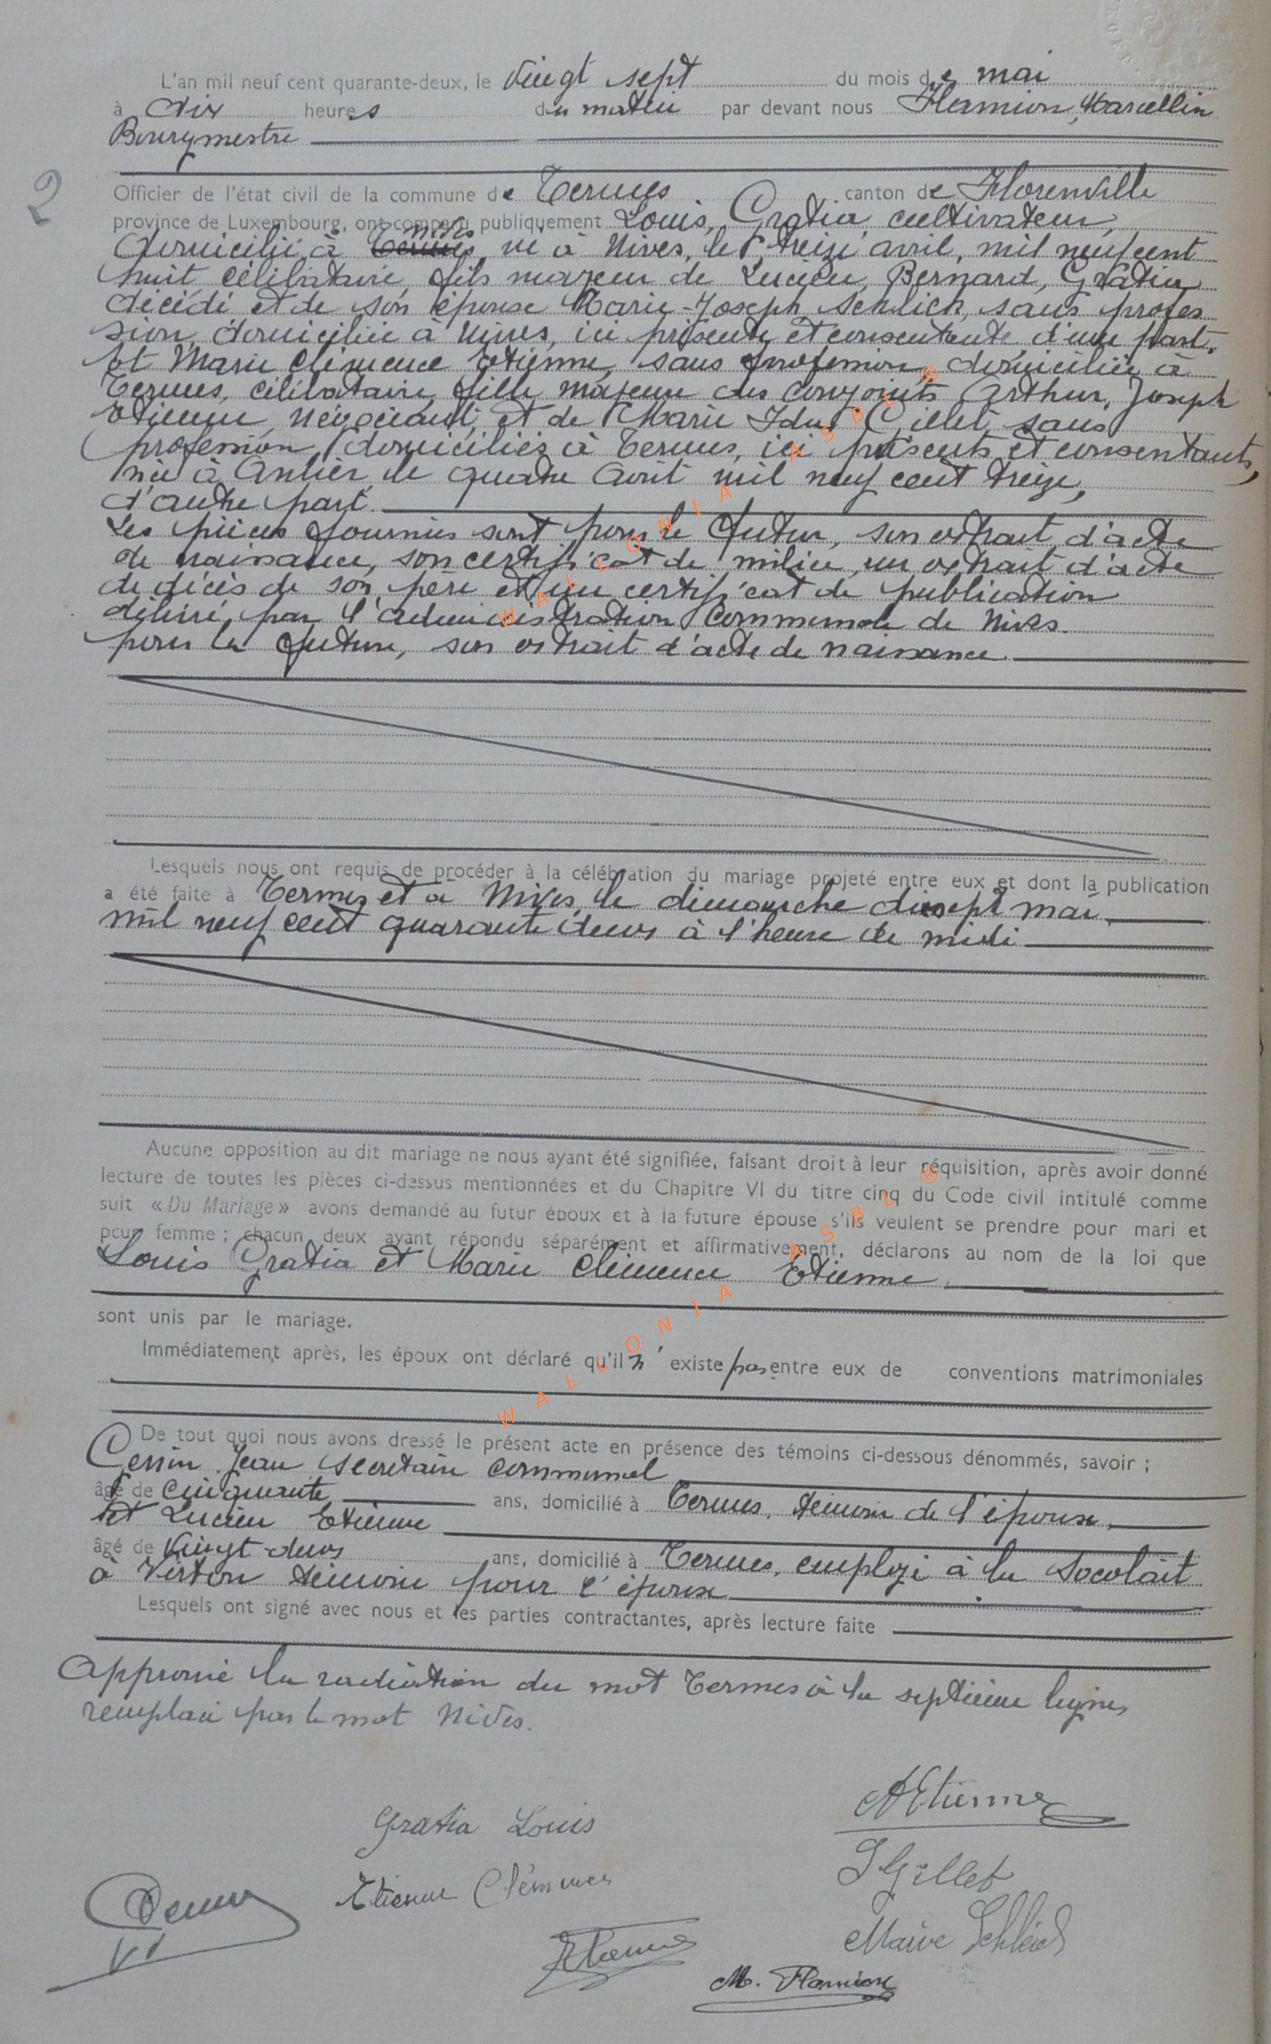 L'an mil neuf cent quarante-deux, le vingt sept du mois de mai
à dix heures du matin par devant nous Flamion, Marcellin
Bourgmestre
2
Officier de l'état civil de la commune de Termes canton de Florenville
province de Luxembourg, ont comparu publiquement Louis, Gratia, cultivateur,
Nives
domicilié à Termes, né à Nives, le treize avril, mil neuf cent
huit, célibataire, fils majeur de Lucien, Bernard, Gratia
décédé et de son épouse Marie-Joseph Schleich, sans profes
sion, domiciliée à Nives, ici présente et consentante d'une part.
Et Marie Clémence Etienne, sans profession, domiciliée à
Termes, célibataire, fille majeure des conjoints Arthur, Joseph
Etienne, négociant, et de Marie Ida Gillet, sans
profession, domiciliés à Termes, ici présents et consentants,
née à Anlier, le quatre avril mil neuf cent treize,
d'autre part.
Les pièces fournies sont pour le futur, son extrait d'acte
de naissance, son certificat de milice, un extrait d'acte
de décès de son père et un certificat de publication
délivré par l'administration communale de Nives
pour la future, son extrait d'acte de naissance
Lesquels nous ont requis de procéder à la célébration du mariage projeté entre eux et dont la publication
a été faite à Termes et à Nives, le dimanche dixsept mai
mil neuf cent quarante deux à l'heure de midi
Aucune opposition au dit mariage ne nous ayant été signifiée, faisant droit à leur réquisition, après avoir donné
lecture de toutes les pièces ci-dessus mentionnées et du Chapitre VI du titre cinq du Code civil intitulé comme
suit « Du Mariage » avons demandé au futur époux et à la future épouse s'ils veulent se prendre pour mari et
pour femme ; chacun deux ayant répondu séparément et affirmativement, déclarons au nom de la loi que
Louis Gratia et Marie Clémence Etienne
sont unis par le mariage.
Immédiatement après, les époux ont déclaré qu'il n'existe pas entre eux de conventions matrimoniales
De tout quoi nous avons dressé le présent acte en présence des témoins ci-dessous dénommés, savoir ;
Jean secrétaire communal
âgé de cinquante ans, domicilié à Termes, témoin de l'épouse.
et Lucien Etienne
âgé de vingt-deux ans, domicilié à Termes, employé à la Socolait
à Virton témoin pour l'épouse
Lesquels ont signé avec nous et les parties contractantes, après lecture faite
Approuvé la radiation du mot Termes à la septième ligne,
remplacé par le mot Nives.
AEtienne
Gratia Louis
I Gillet
Etienne Clémence
Marie Schleich
M. Flamion
WALLONIA ASBL ®
WALLONIA ASBL ®